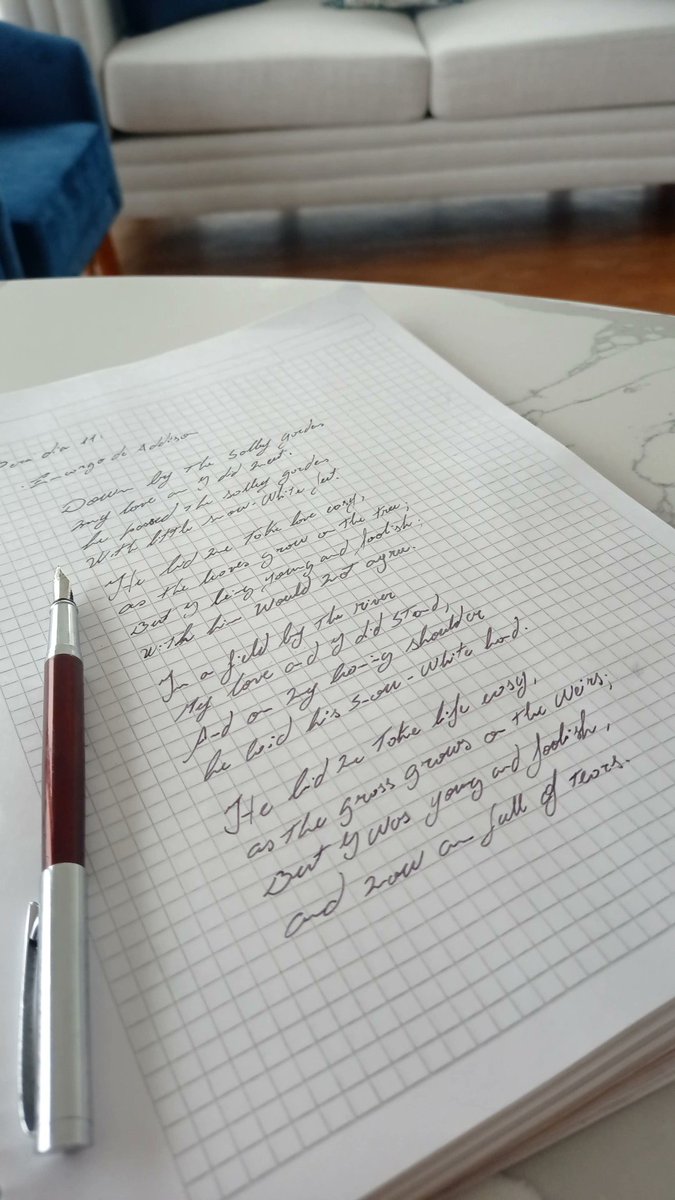 día 11.
Encargo de Addison
Down by the Sally gardens
my love an I did meet.
he passed the sally gardens
with little snow-white feet.
He bid me take love easy,
as the leaves grow on the tree;
But I being young and foolish
with him would not agree.
In a field by the river
My love and I did stand,
And on my leaning shoulder
he laid his snow-white hand.
He bid me take life easy,
as the grass grows on the weirs;
But I was young and foolish,
and now am full of tears.